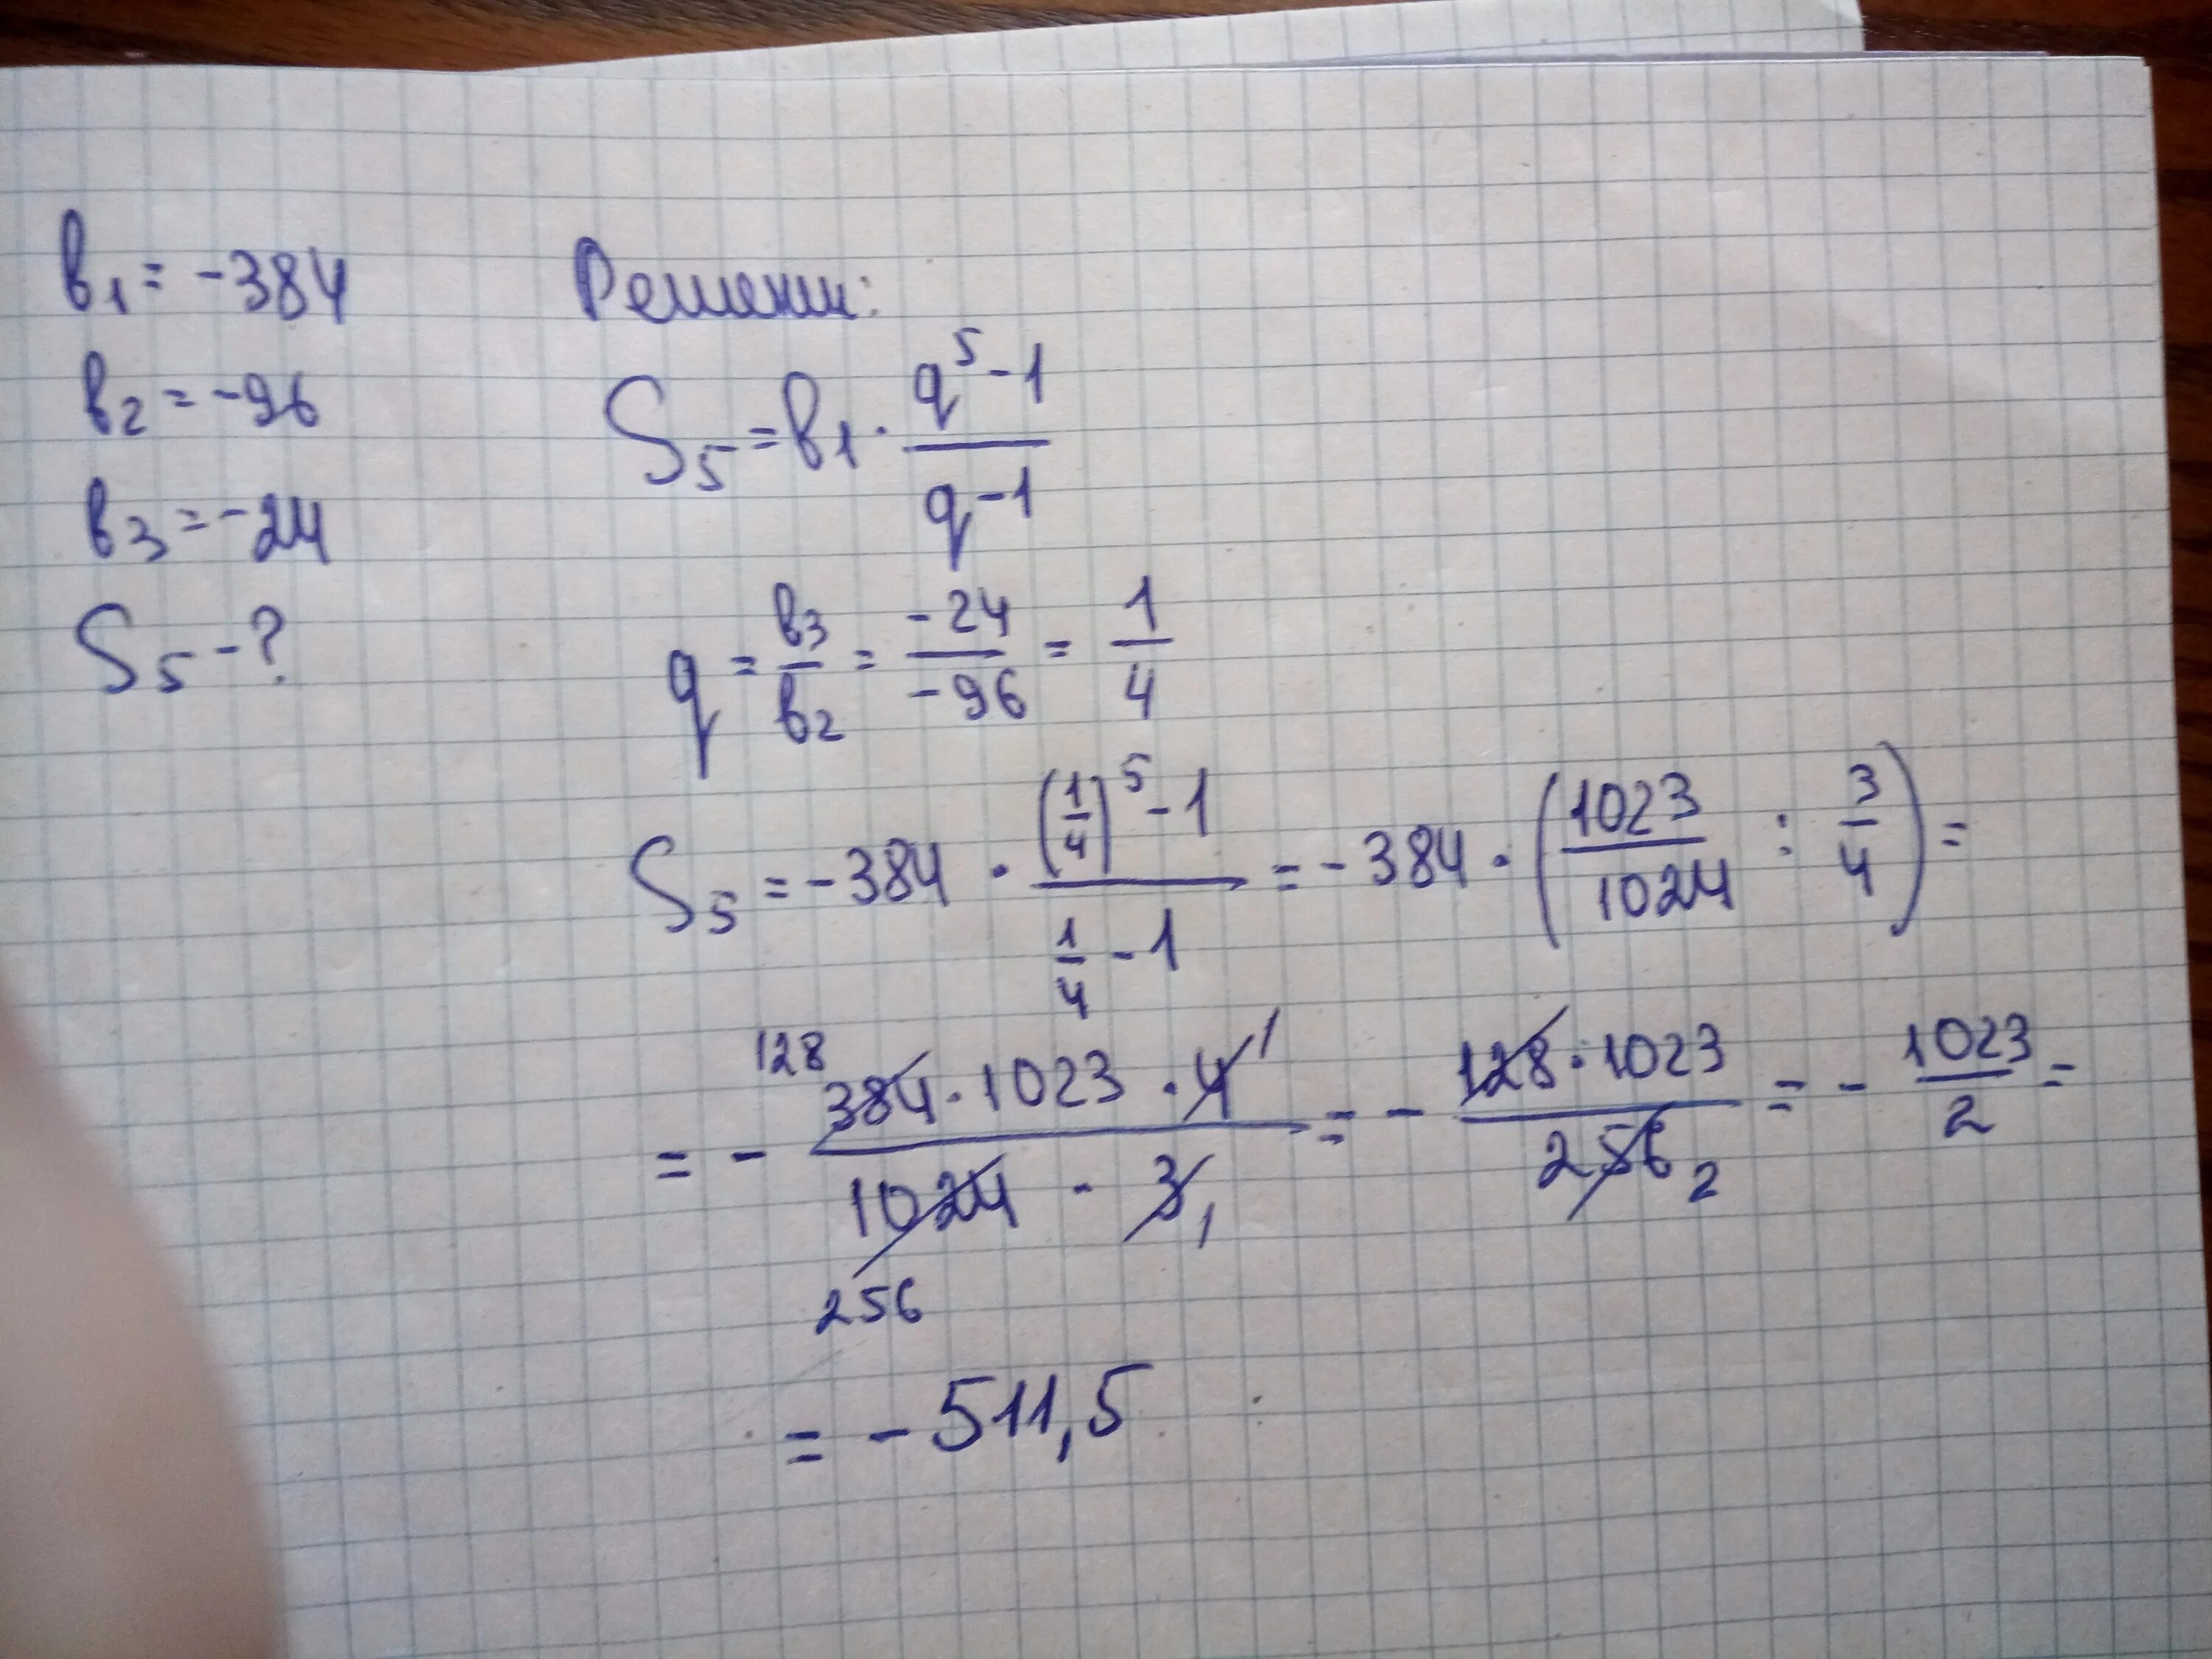 в₁ = -384
в₂ = -96
в₃ = -24
S₅ - ?
Решени:
S₅ = в₁ · (q⁵ - 1)/(q - 1)
q = в₃/в₂ = -24/-96 = 1/4
S₅ = -384 · ((1/4)⁵ - 1)/(1/4 - 1) = -384 · (1023/1024 : 3/4) =
128 1
= - (384 · 1023 · 4)/(1024 · 3) = - (128 · 1023)/256 = - 1023/2 =
256 1 2
= -511,5